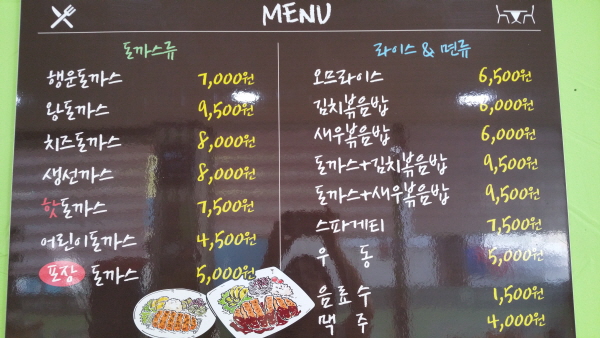 MENU
돈까스류
행운돈까스 7,000원
왕돈까스 9,500원
치즈돈까스 8,000원
생선까스 8,000원
핫돈까스 7,500원
어린이돈까스 4,500원
포장 돈까스 5,000원
라이스 & 면류
오므라이스 6,500원
김치볶음밥 6,000원
새우볶음밥 6,000원
돈까스+김치볶음밥 9,500원
돈까스+새우볶음밥 9,500원
스파게티 7,500원
우 동 5,000원
음료수 1,500원
맥 주 4,000원